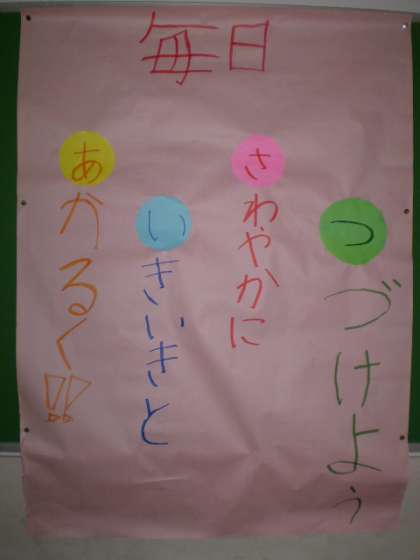 毎日
あかるく!!
いきいきと
さわやかに
つづけよう